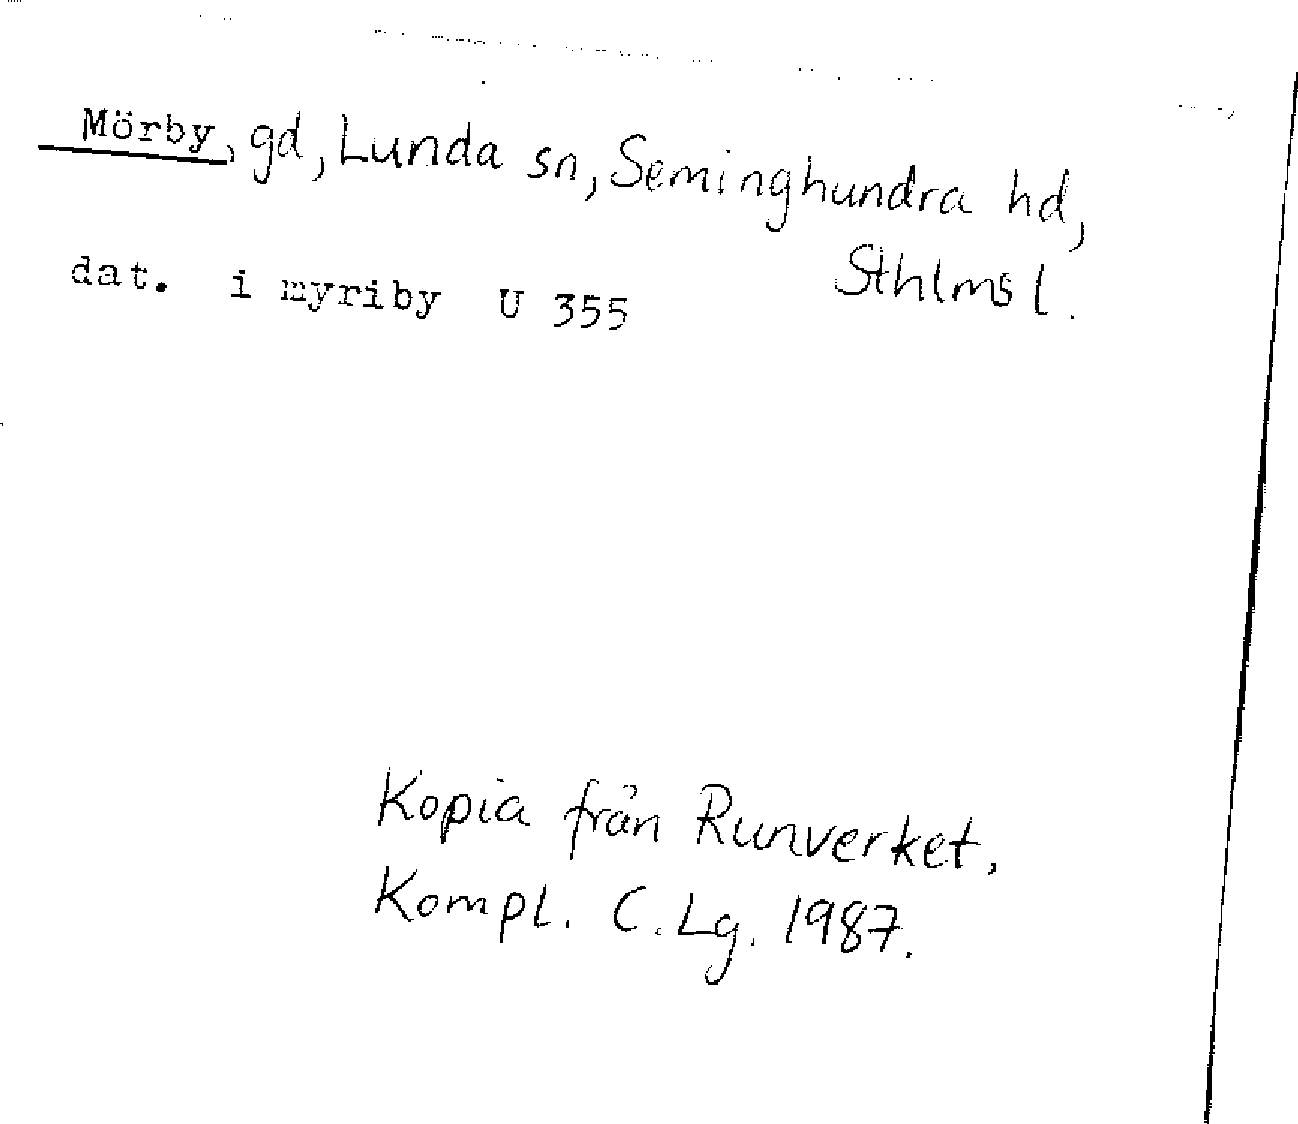 Mörby, gd, Lunda sn, Seminghundra hd,
Sthlms l.
dat. i myriby U 355
Kopia från Runverket.
Kompl. C. Lg. 1987.